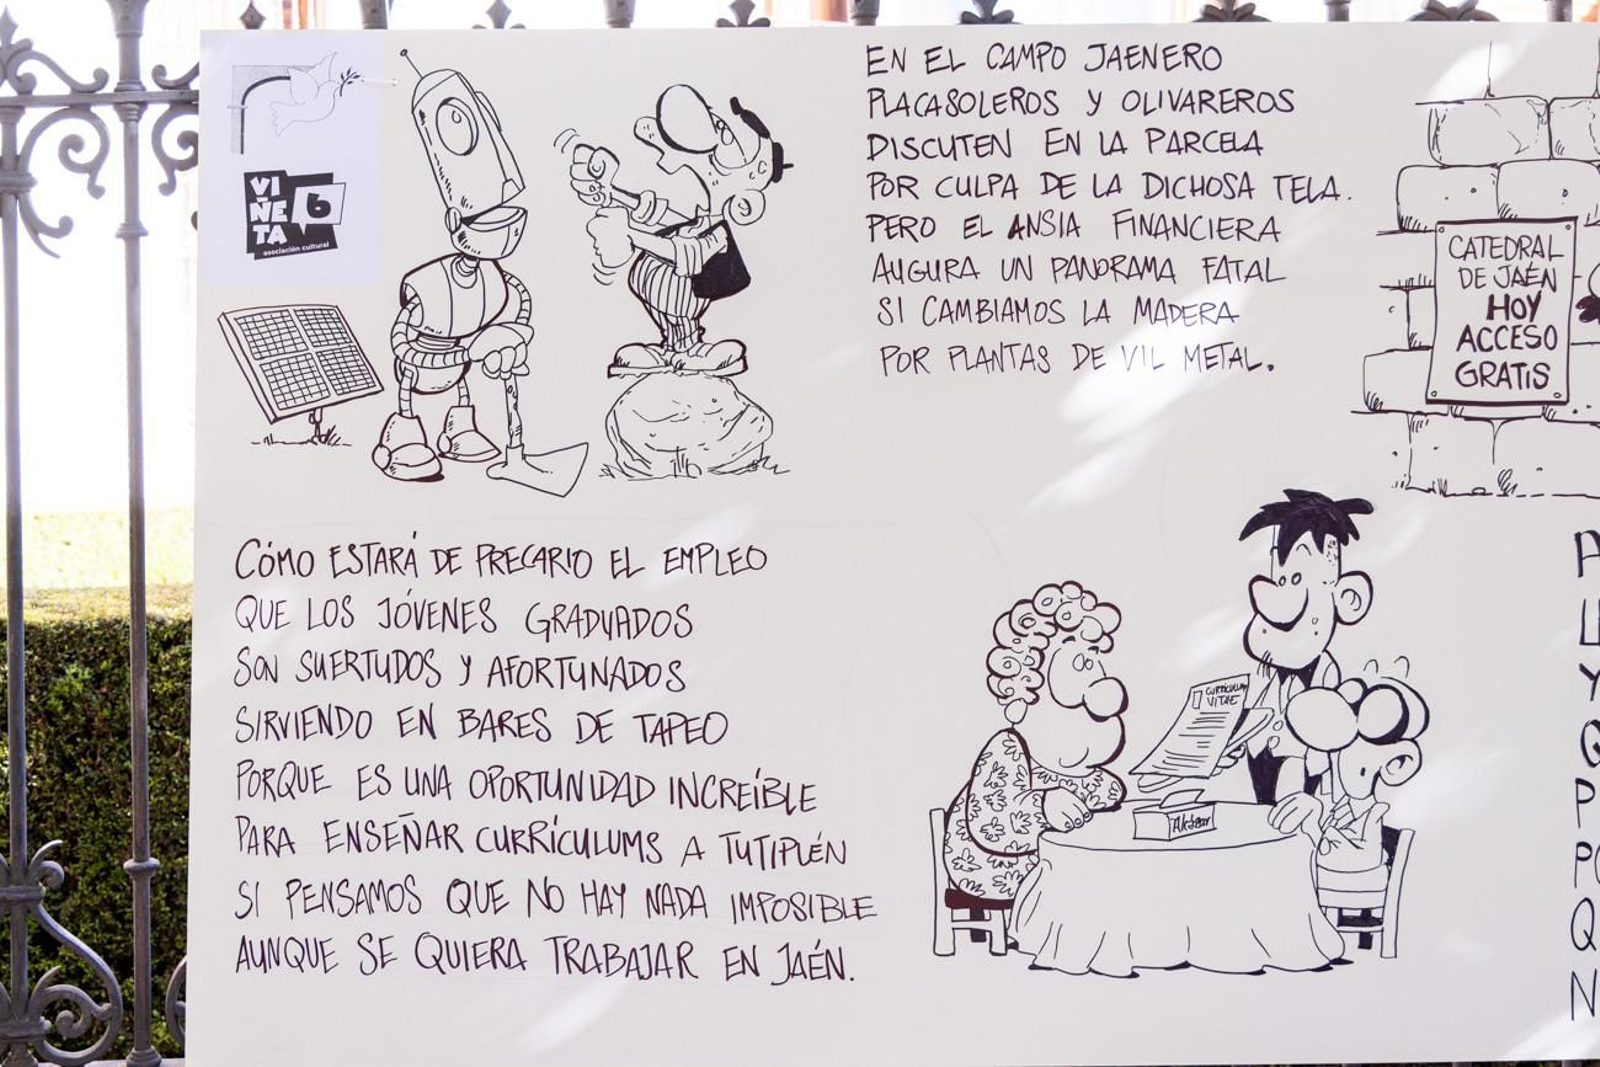 VI
ÑE 6
TA
asociación cultural
EN EL CAMPO JAENERO
PLACASOLEROS Y OLIVAREROS
DISCUTEN EN LA PARCELA
POR CULPA DE LA DICHOSA TELA.
PERO EL ANSIA FINANCIERA
AUGURA UN PANORAMA FATAL
SI CAMBIAMOS LA MADERA
POR PLANTAS DE VIL METAL.
CATEDRAL
DE JAÉN
HOY
ACCESO
GRATIS
CÓMO ESTARÁ DE PRECARIO EL EMPLEO
QUE LOS JÓVENES GRADUADOS
SON SUERTUDOS Y AFORTUNADOS
SIRVIENDO EN BARES DE TAPEO
PORQUE ES UNA OPORTUNIDAD INCREÍBLE
PARA ENSEÑAR CURRÍCULUMS A TUTIPLÉN
SI PENSAMOS QUE NO HAY NADA IMPOSIBLE
AUNQUE SE QUIERA TRABAJAR EN JAÉN.
CURRICULUM
VITAE
A
U
Y
Q
P
PO
Q
N